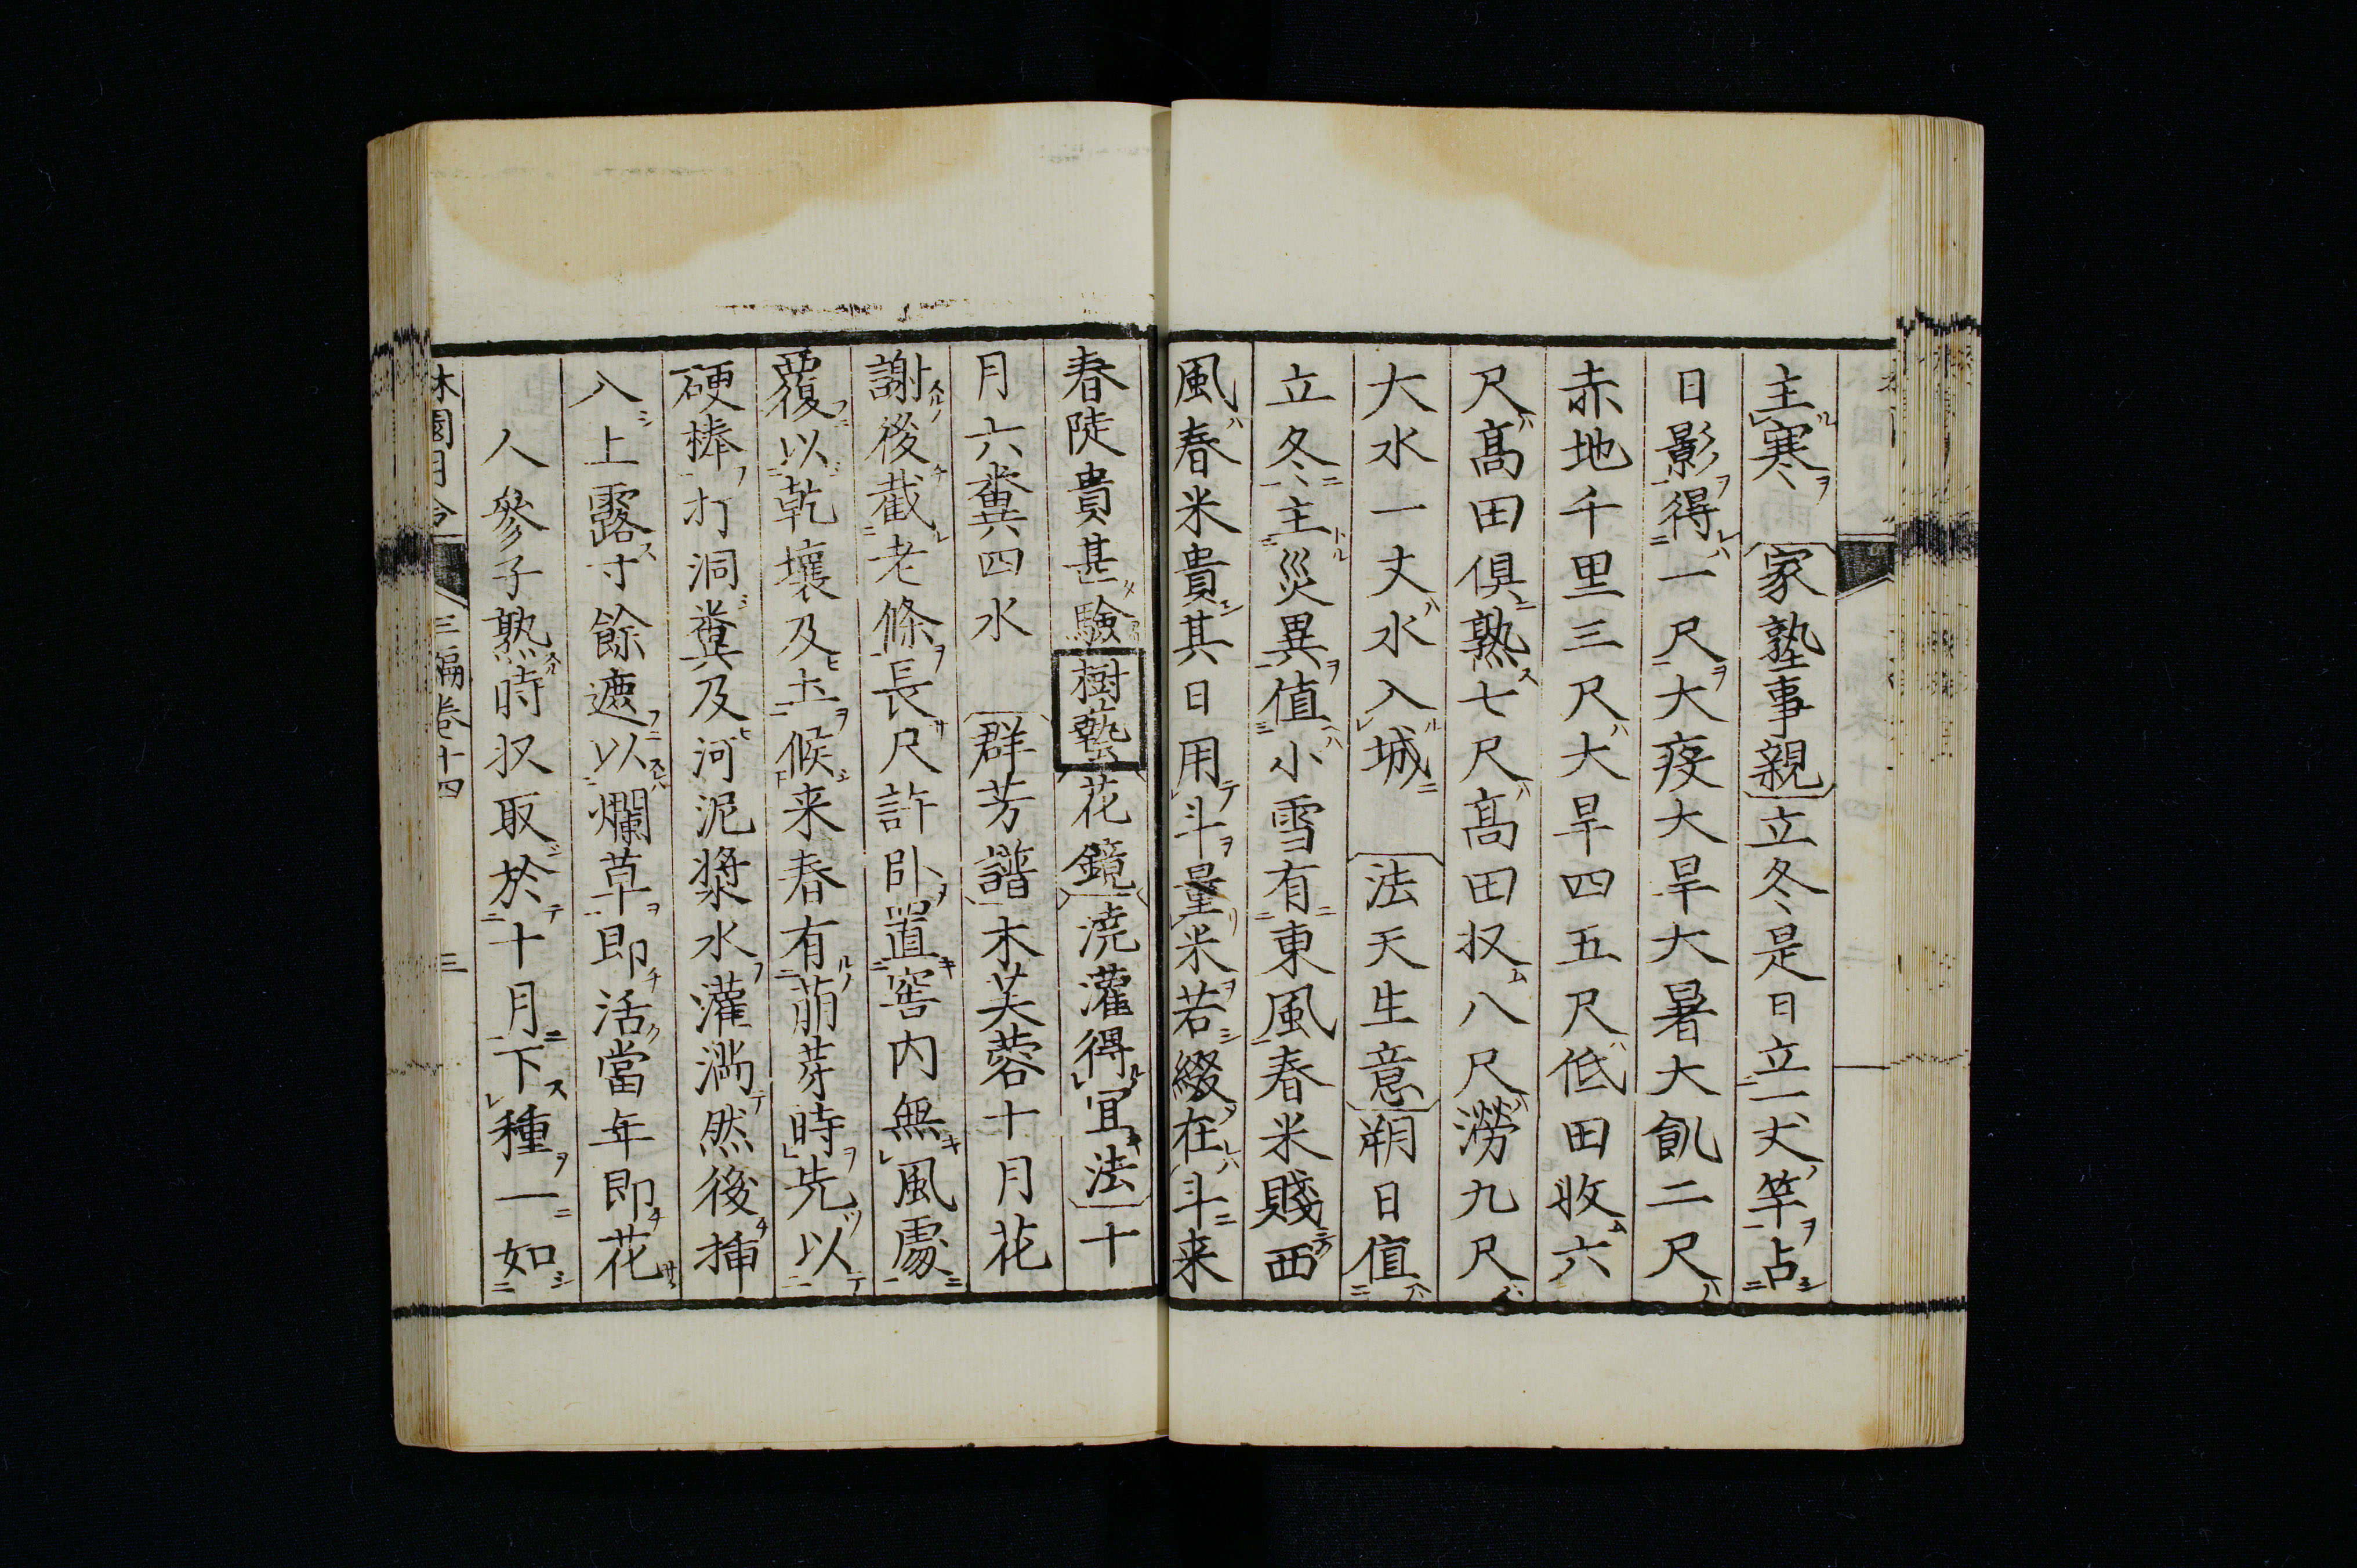 主寒　家塾事親立冬是日立一丈竿占
日影得一尺大疫大旱大暑大飢二尺
赤地千里三尺大旱四五尺低田收六
尺髙田倶熟七尺髙田収八尺澇九尺
大水一丈水入城　法天生意朔日值
立冬主災異值小雪有東風春米賤西
風春米貴其日用斗量米若綴在斗来
春陡貴甚驗樹藝花鏡澆灌得宜法十
月六糞四水　群芳譜木芙蓉十月花
謝後截老條長尺許卧置窖内無風處
覆以乾壤及土候来春有萠芽時先以
硬棒打洞糞及河泥漿水灌滿然後挿
入上露寸餘遮以爛草即活當年即花
人參子熟時収取於十月下種一如
三編卷十四
三